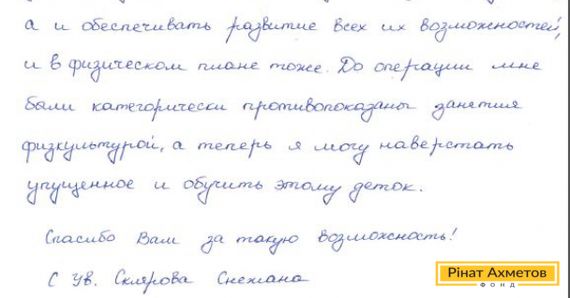 а и обеспечивать развитие всех их возможностей,
и в физическом плане тоже. До операции мне
были категорически противопоказаны занятия
физкультурой, а теперь я могу наверстать
упущенное и обучить этому деток.
Спасибо Вам за такую возможность!
С Ув. Склярова Снежана
Рінат Ахметов
ФОНД